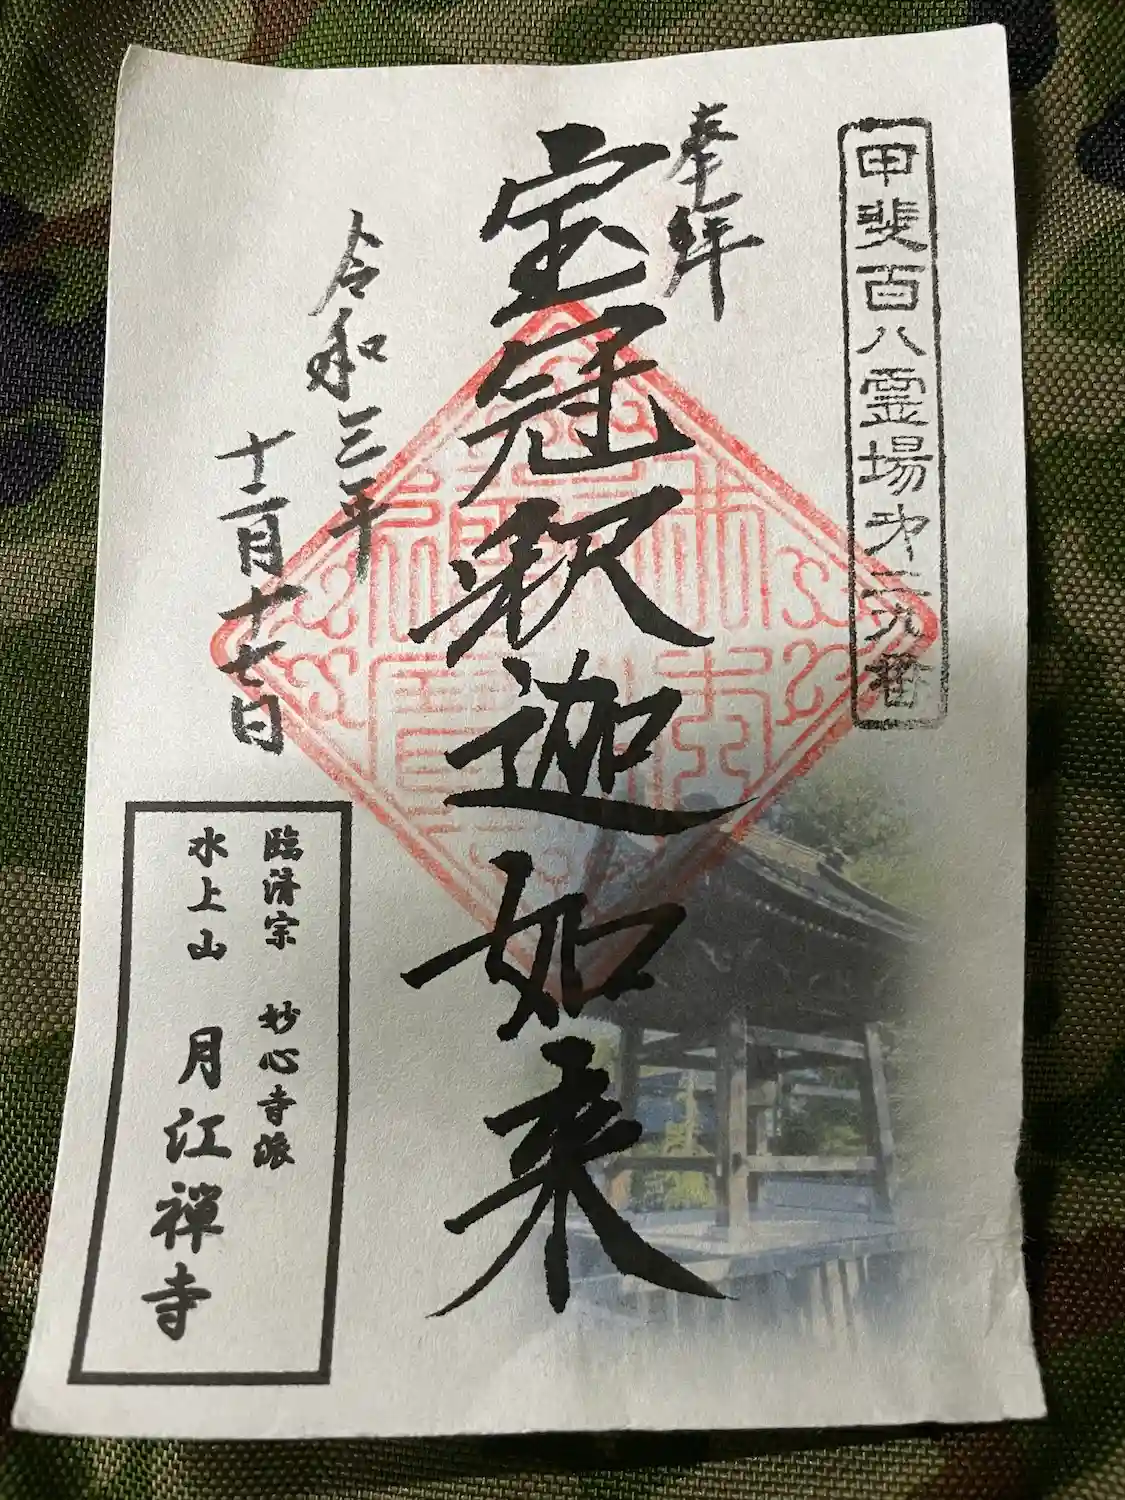 甲斐百八霊場㐧二九番
奉拝
宝冠釈迦如来
令和三年
十一月十七日
臨済宗　妙心寺派
水上山　月江禅寺